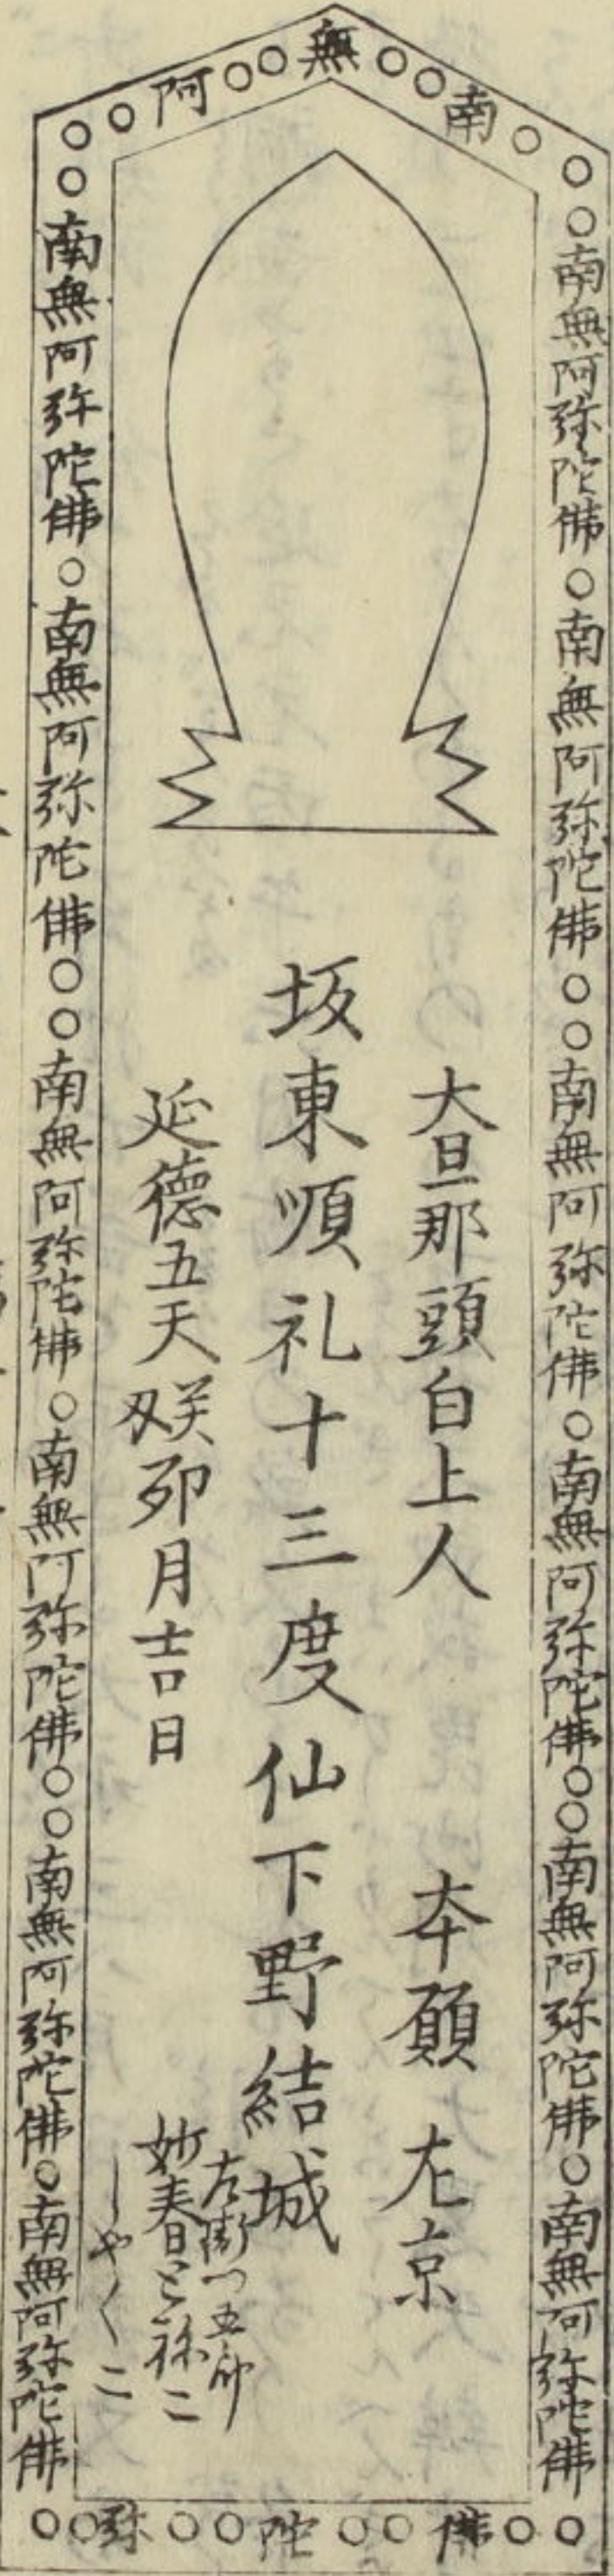 南○○無○○阿○○
○○南無阿弥陀佛○南無阿弥陀佛○○南無阿弥陀佛○南無阿弥陀佛○○南無阿弥陀佛○南無阿弥陀佛
大旦那頭白上人　本願　左京
坂東順礼十三度仙下野結城
左衛つ五郎
妙春と祢こ
しやくこ
延徳五天癸丑卯月吉日
○○南無阿弥陀佛○南無阿弥陀佛○○南無阿弥陀佛○南無阿弥陀佛○○南無阿弥陀佛○南無阿弥陀佛
○○佛○○陀○○弥○○